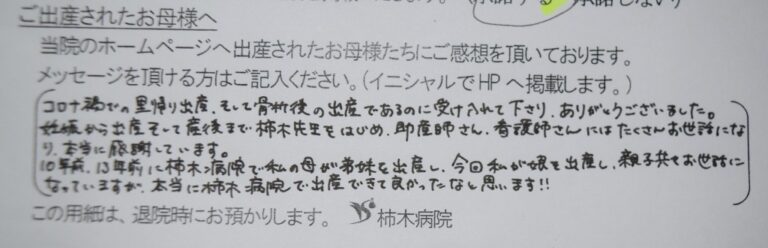 (承諾する 承諾しない)
ご出産されたお母様へ
当院のホームページへ出産されたお母様たちにご感想を頂いております。
メッセージを頂ける方はご記入ください。(イニシャルでHPへ掲載します。)
コロナ禍での里帰り出産、そして骨折後の出産であるのに受け入れて下さり、ありがとうございました。
妊娠から出産そして産後まで柿木先生をはじめ、助産師さん、看護師さんにはたくさんお世話にな
り、本当に感謝しています。
10年前、13年前に柿木病院で私の母が弟妹を出産し、今回私が娘を出産し、親子共々お世話に
なっていますが、本当に柿木病院で出産できて良かったなと思います!!
この用紙は、退院時にお預かりします。 柿木病院